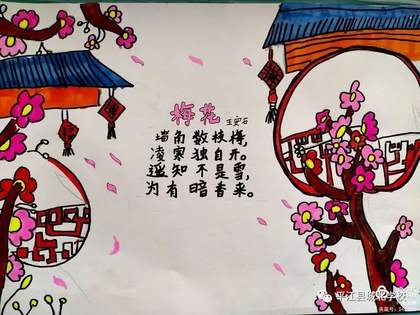 梅花
王安石
墙角数枝梅，
凌寒独自开。
遥知不是雪，
为有暗香来。
平江县城北学校